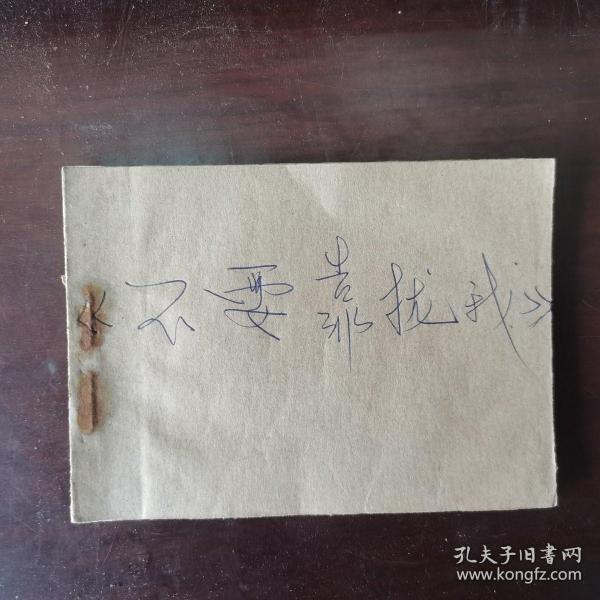 《不要靠拢我》
孔夫子旧书网
www.kongfz.com